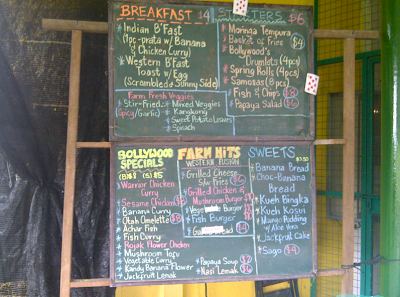 BREAKFAST $4
* Indian B'Fast
(1pc-prata w/ Banana
& Chicken Curry)
* Western B'Fast
Toast w/ Egg
(Scrambled or Sunny Side)
Farm Fresh Veggies
* Stir-Fried:
(Spicy/Garlic)
* Mixed Veggies
* Kangkong
* Sweet Potato Leaves
* Spinach
STARTERS $6
* Moringa Tempura
* Basket of Fries $4
* Bollywood's
Drumlets (4pcs)
* Spring Rolls (4pcs)
* Samosas (8pcs)
* Fish & Chips $8
* Papaya Salad
BOLLYWOOD
SPECIALS
Warrior Chicken
Curry
Sesame Chicken
Banana Curry
Otah Omelette $8
Achar Fish
Fish Curry
Rojak Flower Chicken
Mushroom Tofu
Vegetable Curry
Kandy Banana Flower
Jackfruit Lemak
FARM HITS
WESTERN FUSION
* Grilled Cheese
S/w Fries
* Grilled Chicken &
Mushroom Burger
* Fish Burger
* Papaya Soup
* Nasi Lemak
SWEETS
$3.50
* Banana Bread
* Choc-Banana
Bread
* Kueh Bingka
* Kueh Kosui
* Mango Pudding
w/ Aloe Vera
* Jackfruit Cake
* Sago $4